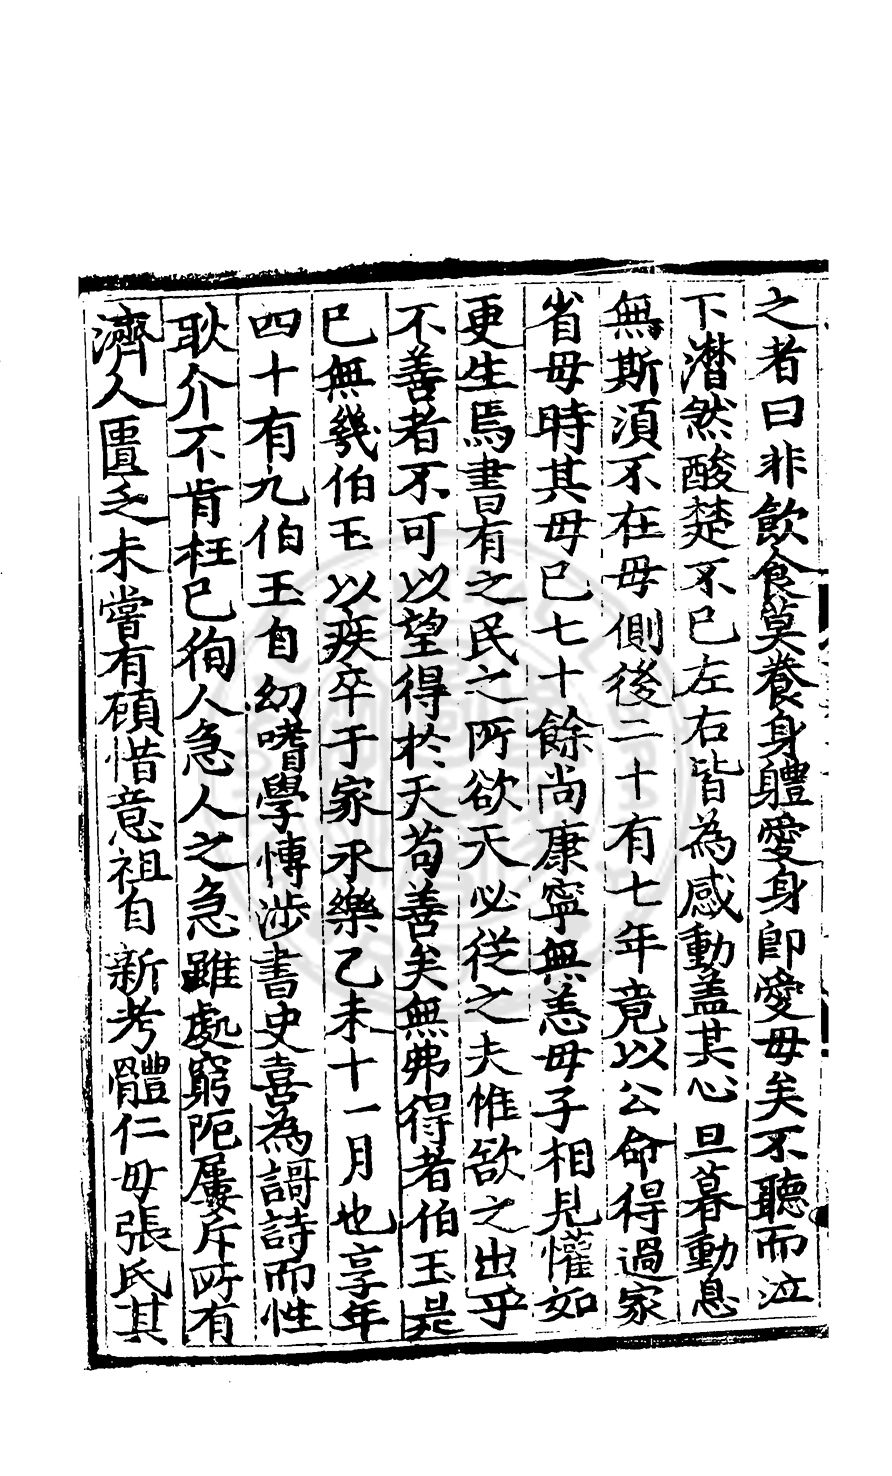 之者曰非飲食莫養身體愛身即愛母矣不聽而泣
下潸然酸楚不已左右皆為感動盖其心旦暮動息
無斯須不在母側後二十有七年竟以公命得過家
省母時其母已七十餘尚康寧無恙母子相見懽如
更生焉書有之民之所欲天必從之夫惟欲之出乎
不善者不可以望得於天苟善矣無弗得者伯玉是
已無幾伯玉以疾卒于家永樂乙未十一月也享年
四十有九伯玉自幼嗜學愽涉書史喜為謌詩而性
耿介不肯枉已徇人急人之急雖處窮阨屢斥所有
濟人匱乏未嘗有顧惜意祖自新考體仁母張氏其